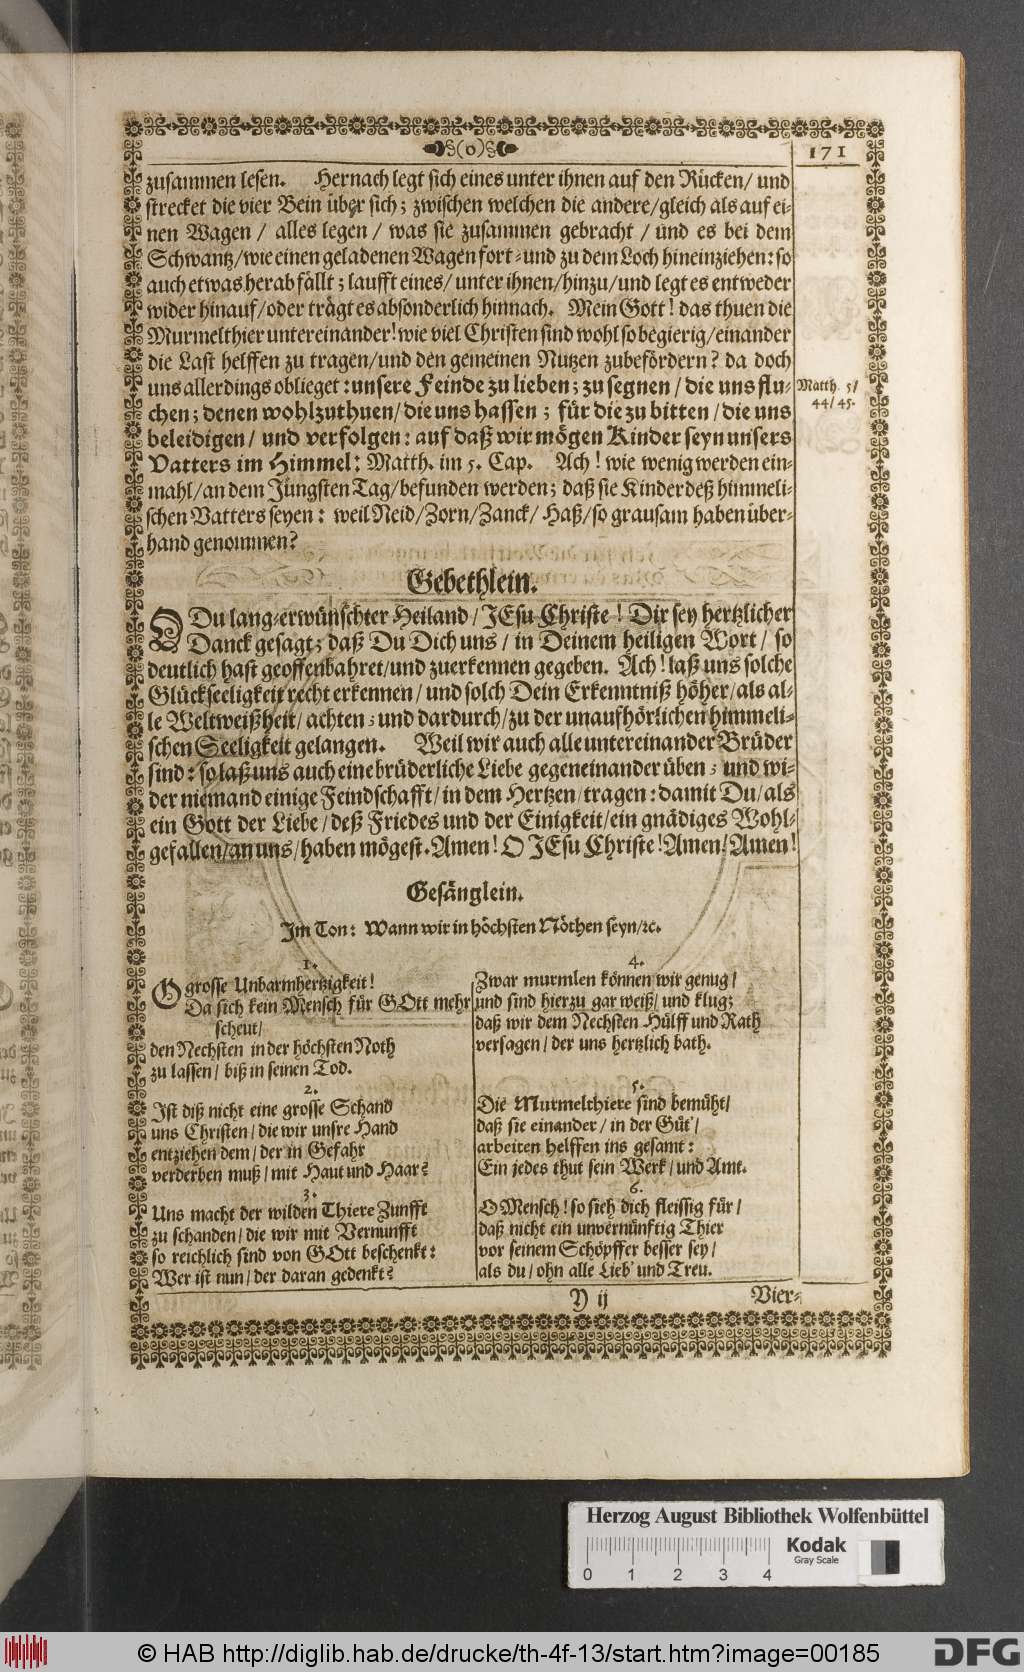 (o)
171
zusammen lesen. Hernach legt sich eines unter ihnen auf den Rücken/ und
strecket die vier Bein über sich; zwischen welchen die andere/gleich als auf ei-
nen Wagen / alles legen / was sie zusammen gebracht / und es bei dem
Schwantz/wie einen geladenen Wagen fort- und zu dem Loch hineinziehen: so
auch etwas herab fällt; laufft eines/ unter ihnen/hinzu/und legt es entweder
wider hinauf/oder trägt es absonderlich hinnach. Mein Gott! das thuen die
Murmelthier untereinander! wie viel Christen sind wohl so begierig/einander
die Last helffen zu tragen/und den gemeinen Nutzen zubefördern? da doch
uns allerdings oblieget: unsere Feinde zu lieben; zu segnen / die uns flu-
chen; denen wohlzuthuen/die uns hassen ; für die zu bitten / die uns
beleidigen/ und verfolgen: auf daß wir mögen Kinder seyn unsers
Vatters im Himmel: Matth. im 5. Cap. Ach! wie wenig werden ein-
mahl/an dem Jüngsten Tag/befunden werden; daß sie Kinder deß himmeli-
schen Vatters seyen: weil Neid/Zorn/Zanck/ Haß/so grausam haben über-
hand genommen?
Matth. 5/
44/45.
Gebethlein.
O Du lang-erwünschter Heiland/JEsu Christe! Dir sey hertzlicher
Danck gesagt; daß Du Dich uns / in Deinem heiligen Wort/ so
deutlich hast geoffenbahret/und zuerkennen gegeben. Ach! laß uns solche
Glückseeligkeit recht erkennen/ und solch Dein Erkenntniß höher/als al-
le Weltweißheit/ achten; und dardurch/zu der unaufhörlichen himmeli-
schen Seeligkeit gelangen. Weil wir auch alle untereinander Brüder
sind: so laß uns auch eine brüderliche Liebe gegeneinander üben; und wi-
der niemand einige Feindschafft/in dem Hertzen/tragen: damit Du/als
ein Gott der Liebe/deß Friedes und der Einigkeit/ein gnädiges Wohl-
gefallen/an uns/haben mögest. Amen! O JEsu Christe! Amen! Amen!
Gesänglein.
Im Ton: Wann wir in höchsten Nöthen seyn/ꝛc.
1.
O grosse Unbarmhertzigkeit!
Da sich kein Mensch für GOtt mehr
scheut/
den Nechsten in der höchsten Noth
zu lassen/ biß in seinen Tod.
2.
Ist diß nicht eine grosse Schand
uns Christen/die wir unsre Hand
entziehen dem/der in Gefahr
verderben muß/mit Haut und Haar?
3.
Uns macht der wilden Thiere Zunfft
zu schanden/die wir mit Vernunfft
so reichlich sind von GOtt beschenkt:
Wer ist nun/der daran gedenkt?
4.
Zwar murmlen können wir genug/
und sind hierzu gar weiß/ und klug;
daß wir dem Nechsten Hülff und Rath
versagen/der uns hertzlich bath.
5.
Die Murmelthiere sind bemüht/
daß sie einander/ in der Güt'/
arbeiten helffen ins gesamt:
Ein jedes thut sein Werk/und Amt.
6.
O Mensch! so sieh dich fleissig für/
daß nicht ein unvernünftig Thier
vor seinem Schöpffer besser sey/
als du/ohn alle Lieb' und Treu.
Y ij
Vier-
Herzog August Bibliothek Wolfenbüttel
Kodak
Gray Scale
0 1 2 3 4
© HAB http://diglib.hab.de/drucke/th-4f-13/start.htm?image=00185
DFG